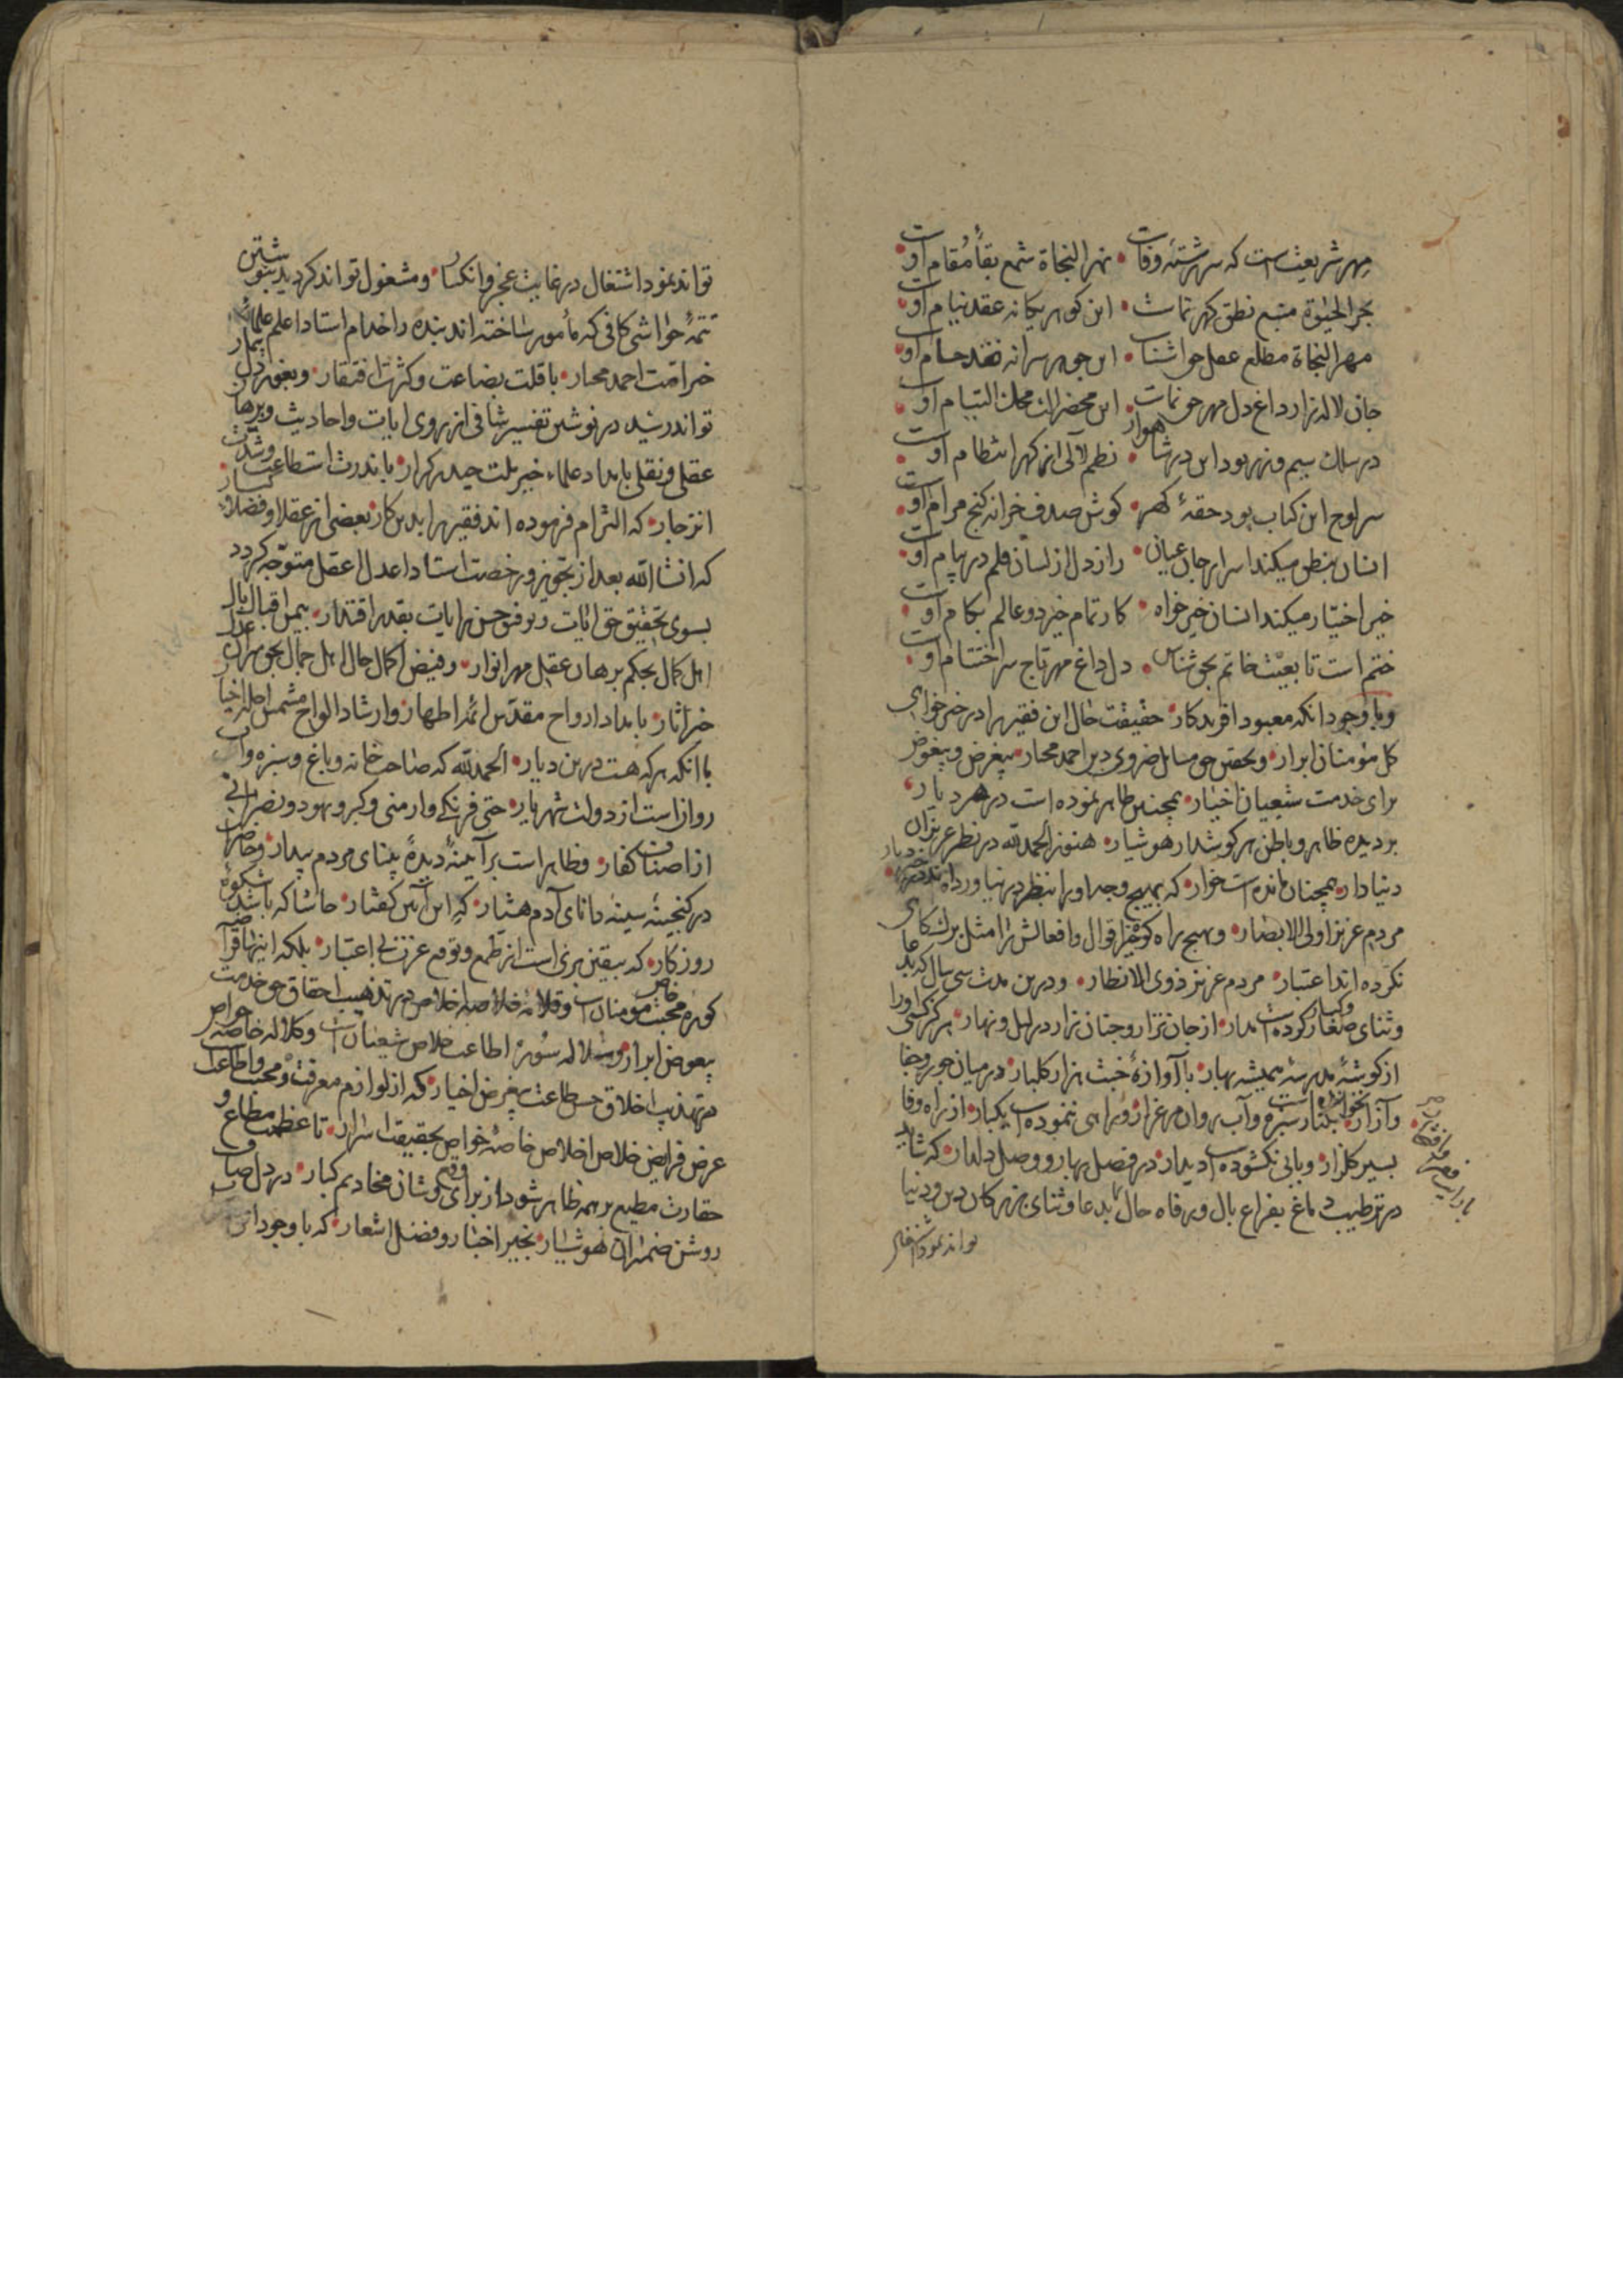 مهر شریعتست که سرشتهٔ وفات • نهر النجاة شمع بقاء مقام اوست
بحر الحیوة منبع نطق کهر نماست • این کوهر یکانه عقد نیام اوست
مهر النجاة مطلع عقل حق شناس • این جوهر سرانه نقد حسام اوست
جان لاله‌زار داغ دل مهر حق نماست • این محضر التیام اوست
در سلک سیم و زر بود این در شاهوار • نظم لآلی از کهر انتظام اوست
سر لوح این کتاب بود حقهٔ کهر • کوش صدف خزانه کنج مرام اوست
انسان بنطق میکند اسرار جان عیان • راز دل از لسان قلم در پیام اوست
خیر اختیار میکند انسان خیر خواه • کار تمام خیر دو عالم بکام اوست
ختم است تابعیت خاتم بحق شناس • دل داغ مهر تاج سر اختتام اوست
و با وجود انکه معبود افریدکار • حقیقت حال این فقیر را در خیر خواهی
کل مؤمنان ابرار • و تحقیق حق مسایل ضروری دین احمد مختار • بیغرض و بیعوض
برای خدمت شیعیان اخیار • همچنین ظاهر نموده است در هر دیار
بر دیده ظاهر و باطن هر کوشدار هوشیار • هنوز الحمد لله در نظر عزیزان
دنیا دار • همچنان مانده است خوار • که بهیچ وجه او را بنظر در نیاورده اند
مردم عزیز اولی الابصار • و هیچ راه کوش اقوال و افعالش را مثل برک کاهی
نکرده اند اعتبار • مردم عزیز ذوی الانظار • و درین مدت سی سال که بدعا
و ثنای صغار و کبار کرده است مدار • از جان نزار و جنان نزار در لیل و نهار • هرکز کسی او را
از کوشهٔ مدرسه همیشه بهار • با آوازهٔ خبث هزار کلبار • در میان جور و جفا
و آزار • نخوانده است بکنار سبزه و آب روان مرغزار • و راهی ننموده است یکبار • از راه وفا
بسیر کلزار • و بابی نکشوده است ادیدار • در فصل بهار و وصل دلدار • که شاید
در ترطیب دماغ بفراغ بال و رفاه حال بدعا و ثنای بزرکان دین و دنیا
تواند نمود اشتغال
تواند نمود اشتغال در غایت عجز و انکسار • و مشغول تواند کردید بنوشتن
تتمهٔ حواشی کافی که مأمور ساخته اند بنده را خدام استاد اعلم علماء
خیر امت احمد مختار • با قلت بضاعت و کثرت افتقار • و بغور دل بیمار
تواند رسید در نوشتن تفسیر شافی از روی ایات و احادیث و برهان
عقلی و نقلی بامداد علماء خیر ملت حیدر کرار • با ندرت استطاعت و شدت
انزجار • که التزام فرموده اند فقیر را بدین کار • بعضی از عقلا و فضلا
که انشاء الله بعد از تجویز و رخصت استاد اعدل اعقل متوجه کردد
بسوی تحقیق حق ایات و توفیق حسن روایات بقدر اقتدار • بیمن اقبال
اهل کمال بحکم برهان عقل مهر انوار • و فیض اکمال حال اهل جمال بحق
خیر اثار • بامداد ارواح مقدس ائمه اطهار • و ارشاد الواح
با انکه هر که هست درین دیار • الحمد لله که صاحب خانه و باغ و سبزه و آب
روان است از دولت شهریار • حتی فرنکی و ارمنی و کبر و یهود و نصرانی
از اصناف کفار • و ظاهر است بر آیینهٔ دیدهٔ بینای مردم بیدار • و حاضر
در کنجینهٔ سینهٔ دانای آدم هشیار • که این آئین کفتار • حاشا که باشد شکوهٔ
روزکار • که بیقین بری است از طمع و توقع عزت بی اعتبار • بلکه اینها
کوهر محبت مؤمنان است و قلادهٔ خلاصهٔ اخلاص در تهذیب احقاق حق خدمت
بیعوض ابرار • و سلالهٔ سورهٔ اطاعت خلاص شیعیان است و کلالهٔ خاصه خواص
در تهذیب اخلاق حسن طاعت بیغرض اخیار • که از لوازم معرفت و محبت و اطاعت
عرض فرایض خلاص اخلاص خاصهٔ خواص بحقیقت اسرار • تا عظمت مطاع و
حقارت مطیع بر همه ظاهر شود از برای کوشان مخادیم کبار • در دل صاف
روشن ضمیران هوشیار • بخیر اخبار و فضل اشعار • که با وجود